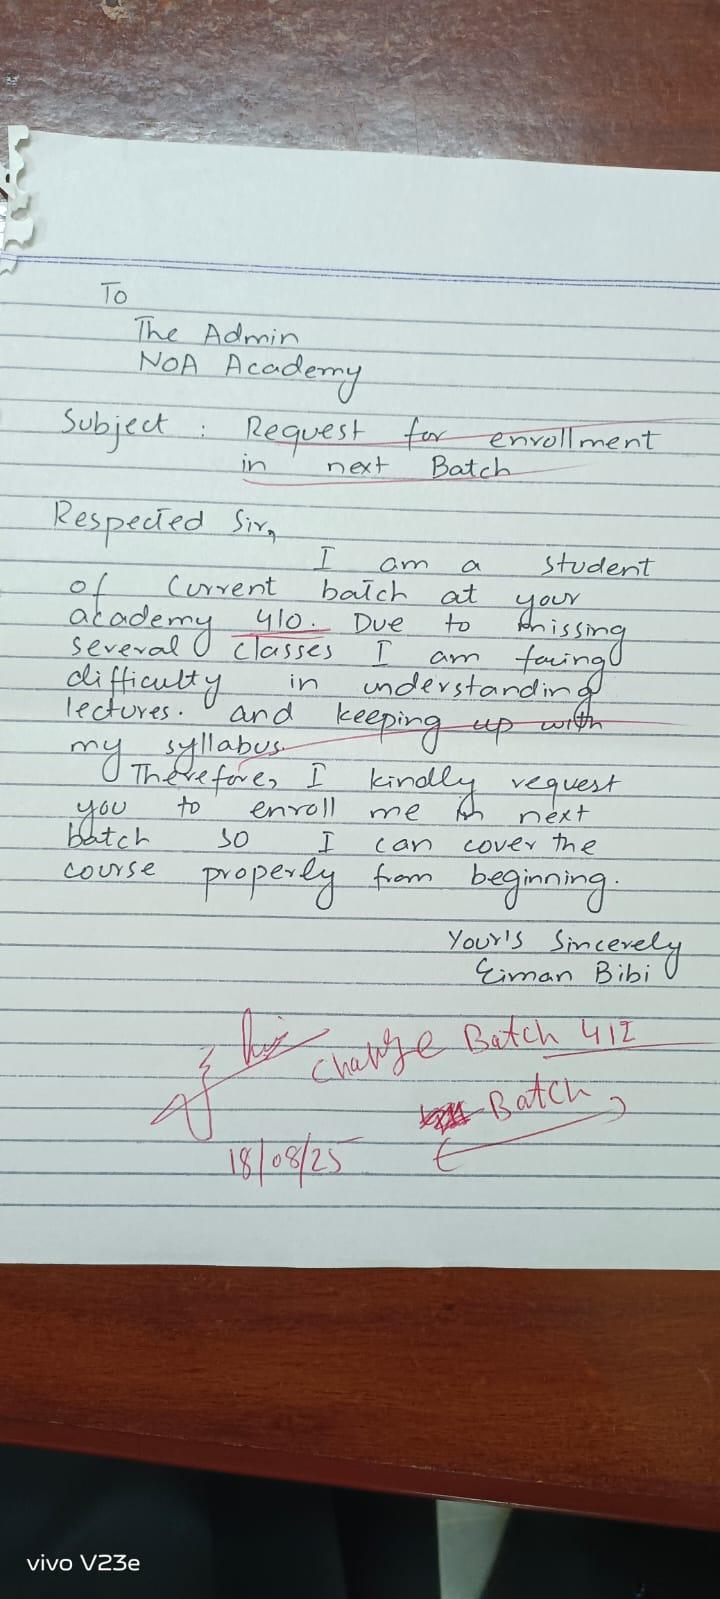 To
The Admin
NOA Academy
Subject : Request for enrollment
in next Batch
Respected Sir,
I am a student
of Current batch at your
academy 410. Due to missing
several classes I am facing
difficulty in understanding
lectures. and keeping up with
my syllabus.
Therefore, I kindly request
you to enroll me in next
batch so I can cover the
course properly from beginning.
Your's Sincerely
Eiman Bibi
Change Batch 412
Batch
18/08/25
vivo V23e